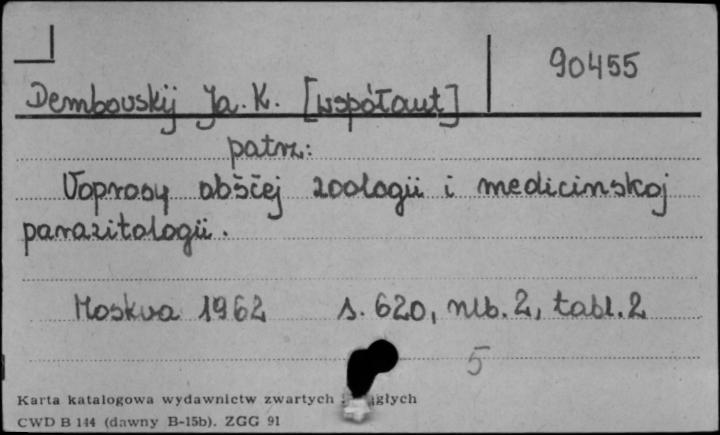 90455
Dembovskij Ja. K. [współaut]
patrz:
Voprosy obščej zoologii i medicinskoj
parazitologii.
Moskva 1962 s. 620, nlb. 2, tabl. 2
5
Karta katalogowa wydawnictw zwartych
CWD B 144 (dawny B-15b). ZGG 91